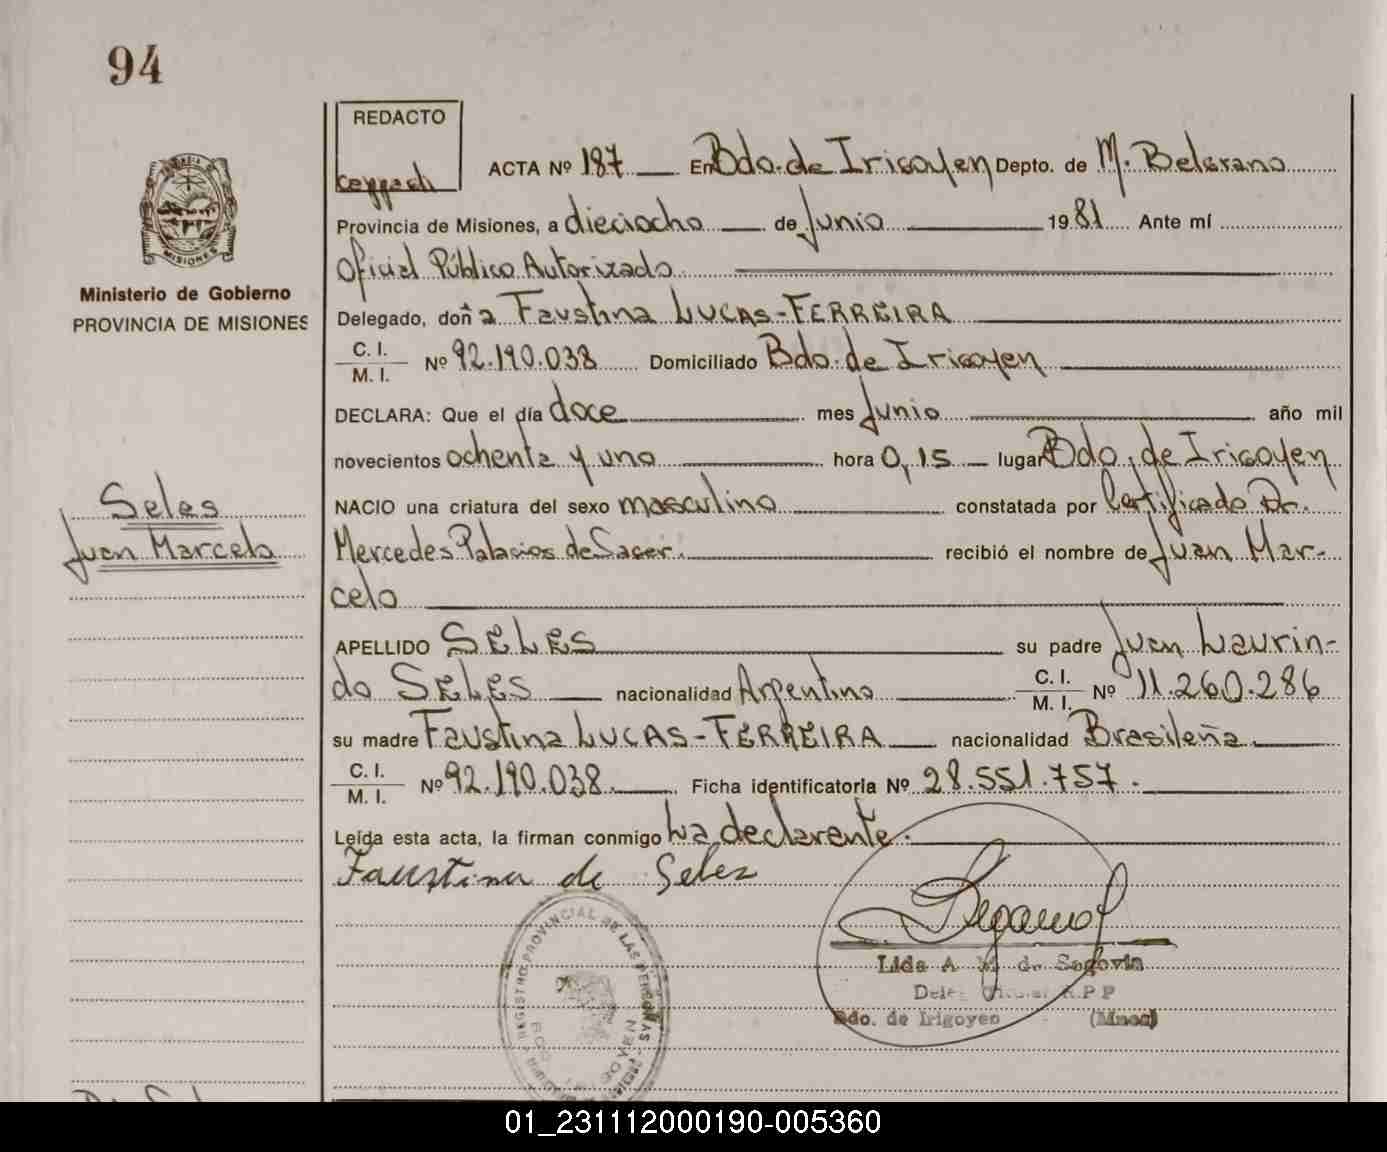 94
REDACTO
ACTA Nº 187 En Bdo. de Irigoyen Depto. de M. Belgrano
Provincia de Misiones, a dieciocho de Junio 1981 Ante mí
Oficial Público Autorizado
Ministerio de Gobierno
PROVINCIA DE MISIONES
Delegado, doña Faustina LUCAS-FERREIRA
C. I.
M. I. Nº 92.190.038 Domiciliado Bdo. de Irigoyen
DECLARA: Que el día doce mes Junio año mil
novecientos ochenta y uno hora 0,15 lugar Bdo. de Irigoyen
Seles
Juan Marcelo
NACIO una criatura del sexo masculino constatada por Certificado Dr.
Mercedes Palacios de Sacer. recibió el nombre de Juan Mar-
celo
APELLIDO SELES su padre Juan Laurin-
do SELES nacionalidad Argentino C. I. M. I. Nº 11.260.286
su madre Faustina LUCAS-FERREIRA nacionalidad Brasileña
C. I.
M. I. Nº 92.190.038 Ficha identificatoria Nº 28.551.757.
Leída esta acta, la firman conmigo La declarente.
Faustina de Seles
REGISTRO PROVINCIAL DE LAS PERSONAS
Lida A M de Segovia
R.P.P
Bdo. de Irigoyen (Mnes)
01_231112000190-005360